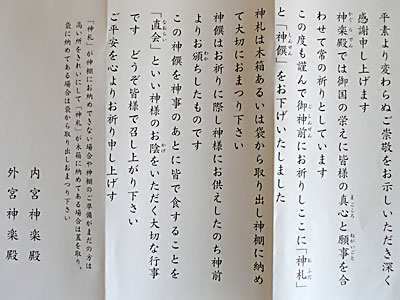 平素より変わらぬご崇敬をお示しいただき深く
感謝申し上げます
神楽殿では御国の栄えに皆様の真心と願事を合
わせて常の祈りとしています
この度も謹んで御神前にお祈りしここに「神札」
と「神饌」をお下げいたしました
神札は木箱あるいは袋から取り出し神棚に納め
て大切におまつり下さい
神饌はお祈りに際し神様にお供えしたのち神前
よりお頒ちしたものです
この神饌を神事のあとに皆で食することを
「直会」といい神様のお陰をいただく大切な行事
です　どうぞ皆様で召し上がり下さい
ご平安をこころよりお祈り申し上げます
「神札」が神棚にお納めできない場合や神棚のご準備がまだの方は
高い所をきれいにして「神札」が木箱に納めてある場合は蓋を取り、
袋に納めてある場合は袋から取り出しおまつり下さい。
内宮神楽殿
外宮神楽殿